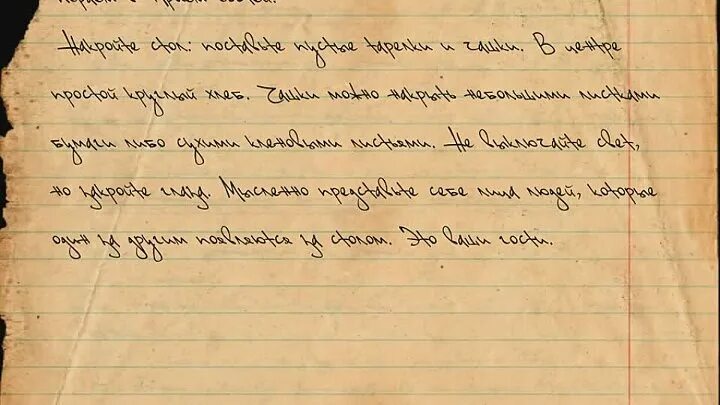 Накройте стол: поставьте пустые тарелки и чашки. В центре
простой круглый хлеб. Чашки можно накрыть небольшими листками
бумаги либо сухими кленовыми листьями. Не выключайте свет,
но закройте глаза. Мысленно представьте себе лица людей, которые
один за другим появляются за столом. Это ваши гости.